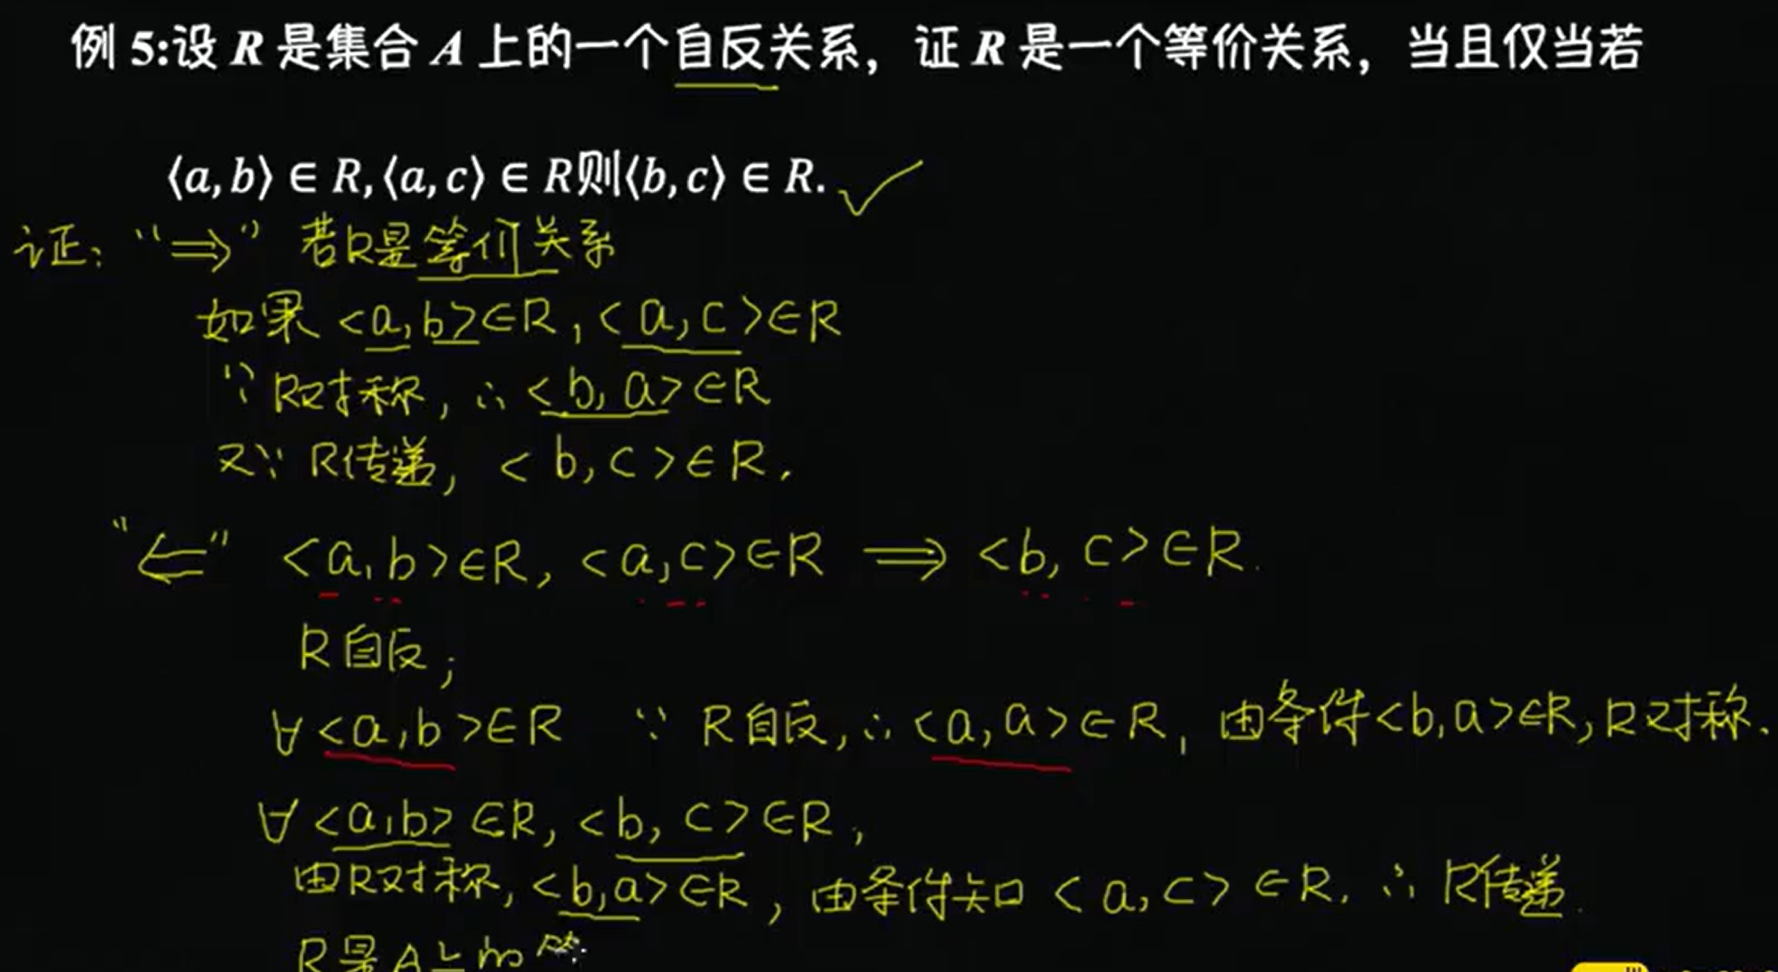 例 5:设 R 是集合 A 上的一个自反关系，证 R 是一个等价关系，当且仅当若
⟨a,b⟩ ∈ R,⟨a,c⟩ ∈ R则⟨b,c⟩ ∈ R.
证: “⇒” 若R是等价关系
如果 <a,b>∈R, <a,c>∈R
∵ R对称, ∴ <b,a>∈R
又∵ R传递, <b,c>∈R.
“⇐” <a,b>∈R, <a,c>∈R ⟹ <b,c>∈R.
R自反;
∀<a,b>∈R ∵ R自反,∴<a,a>∈R, 由条件<b,a>∈R,R对称.
∀<a,b>∈R,<b,c>∈R,
由R对称,<b,a>∈R, 由条件知<a,c>∈R. ∴ R传递.
R是A上的